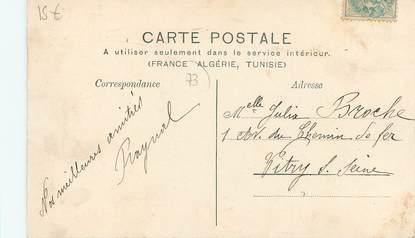 15€
CARTE POSTALE
A utiliser seulement dans le service intérieur.
(FRANCE ALGÉRIE, TUNISIE)
Correspondance
73
Adresse
Nos meilleures amitiés
Raynal
Melle Julia Broche
1 Av. du Chemin de fer
Vitry s. Seine